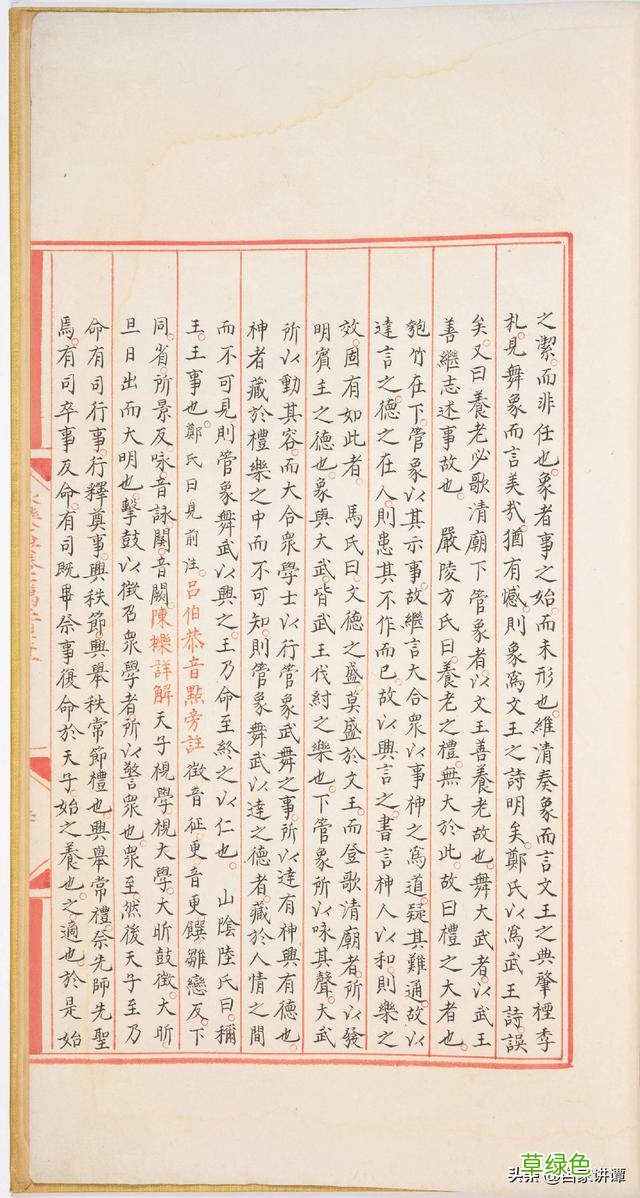 之潔而非任也象者事之始而未形也維清奏象而言文王之典肇禋季
札見舞象而言美㦲猶有憾則象為文王之詩明矣鄭氏以為武王詩誤
矣又曰養老必歌清廟下管象者以文王善養老故也舞大武者以武王
善繼志述事故也 嚴陵方氏曰養老之禮無大於此故曰禮之大者也
匏竹在下管象以其示事故繼言大合衆以事神之為道疑其難通故以
達言之德之在人則患其不作而已故以興言之書言神人以和則樂之
效固有如此者 馬氏曰文德之盛莫盛於文王而登歌清廟者所以發
明賓王之德也象與大武皆武王伐紂之樂也下管象所以咏其聲大武
所以動其容而大合衆學士以行管象武舞之事所以達有神興有德也
神者藏於禮樂之中而不可知則管象舞武以達之德者藏於人情之間
而不可見則管象舞武以興之王乃命至終之以仁也 山陰陸氏曰稱
王王事也鄭氏曰見前注吕伯恭音點旁註徵音征更音更饌雛戀反下
同省所景反咏音詠闋音闕陳櫟詳解天子視學視大學大昕鼓徵大昕
旦日出而大明也擊鼓以徵召衆學者所以警衆也衆至然後天子至乃
命有司行事行釋奠事興秩節興舉秩常節禮也興舉常禮祭先師先聖
焉有司卒事反命有司既畢祭事復命於天子始之養也之適也於是始
草绿色
头条 @百家讲谭